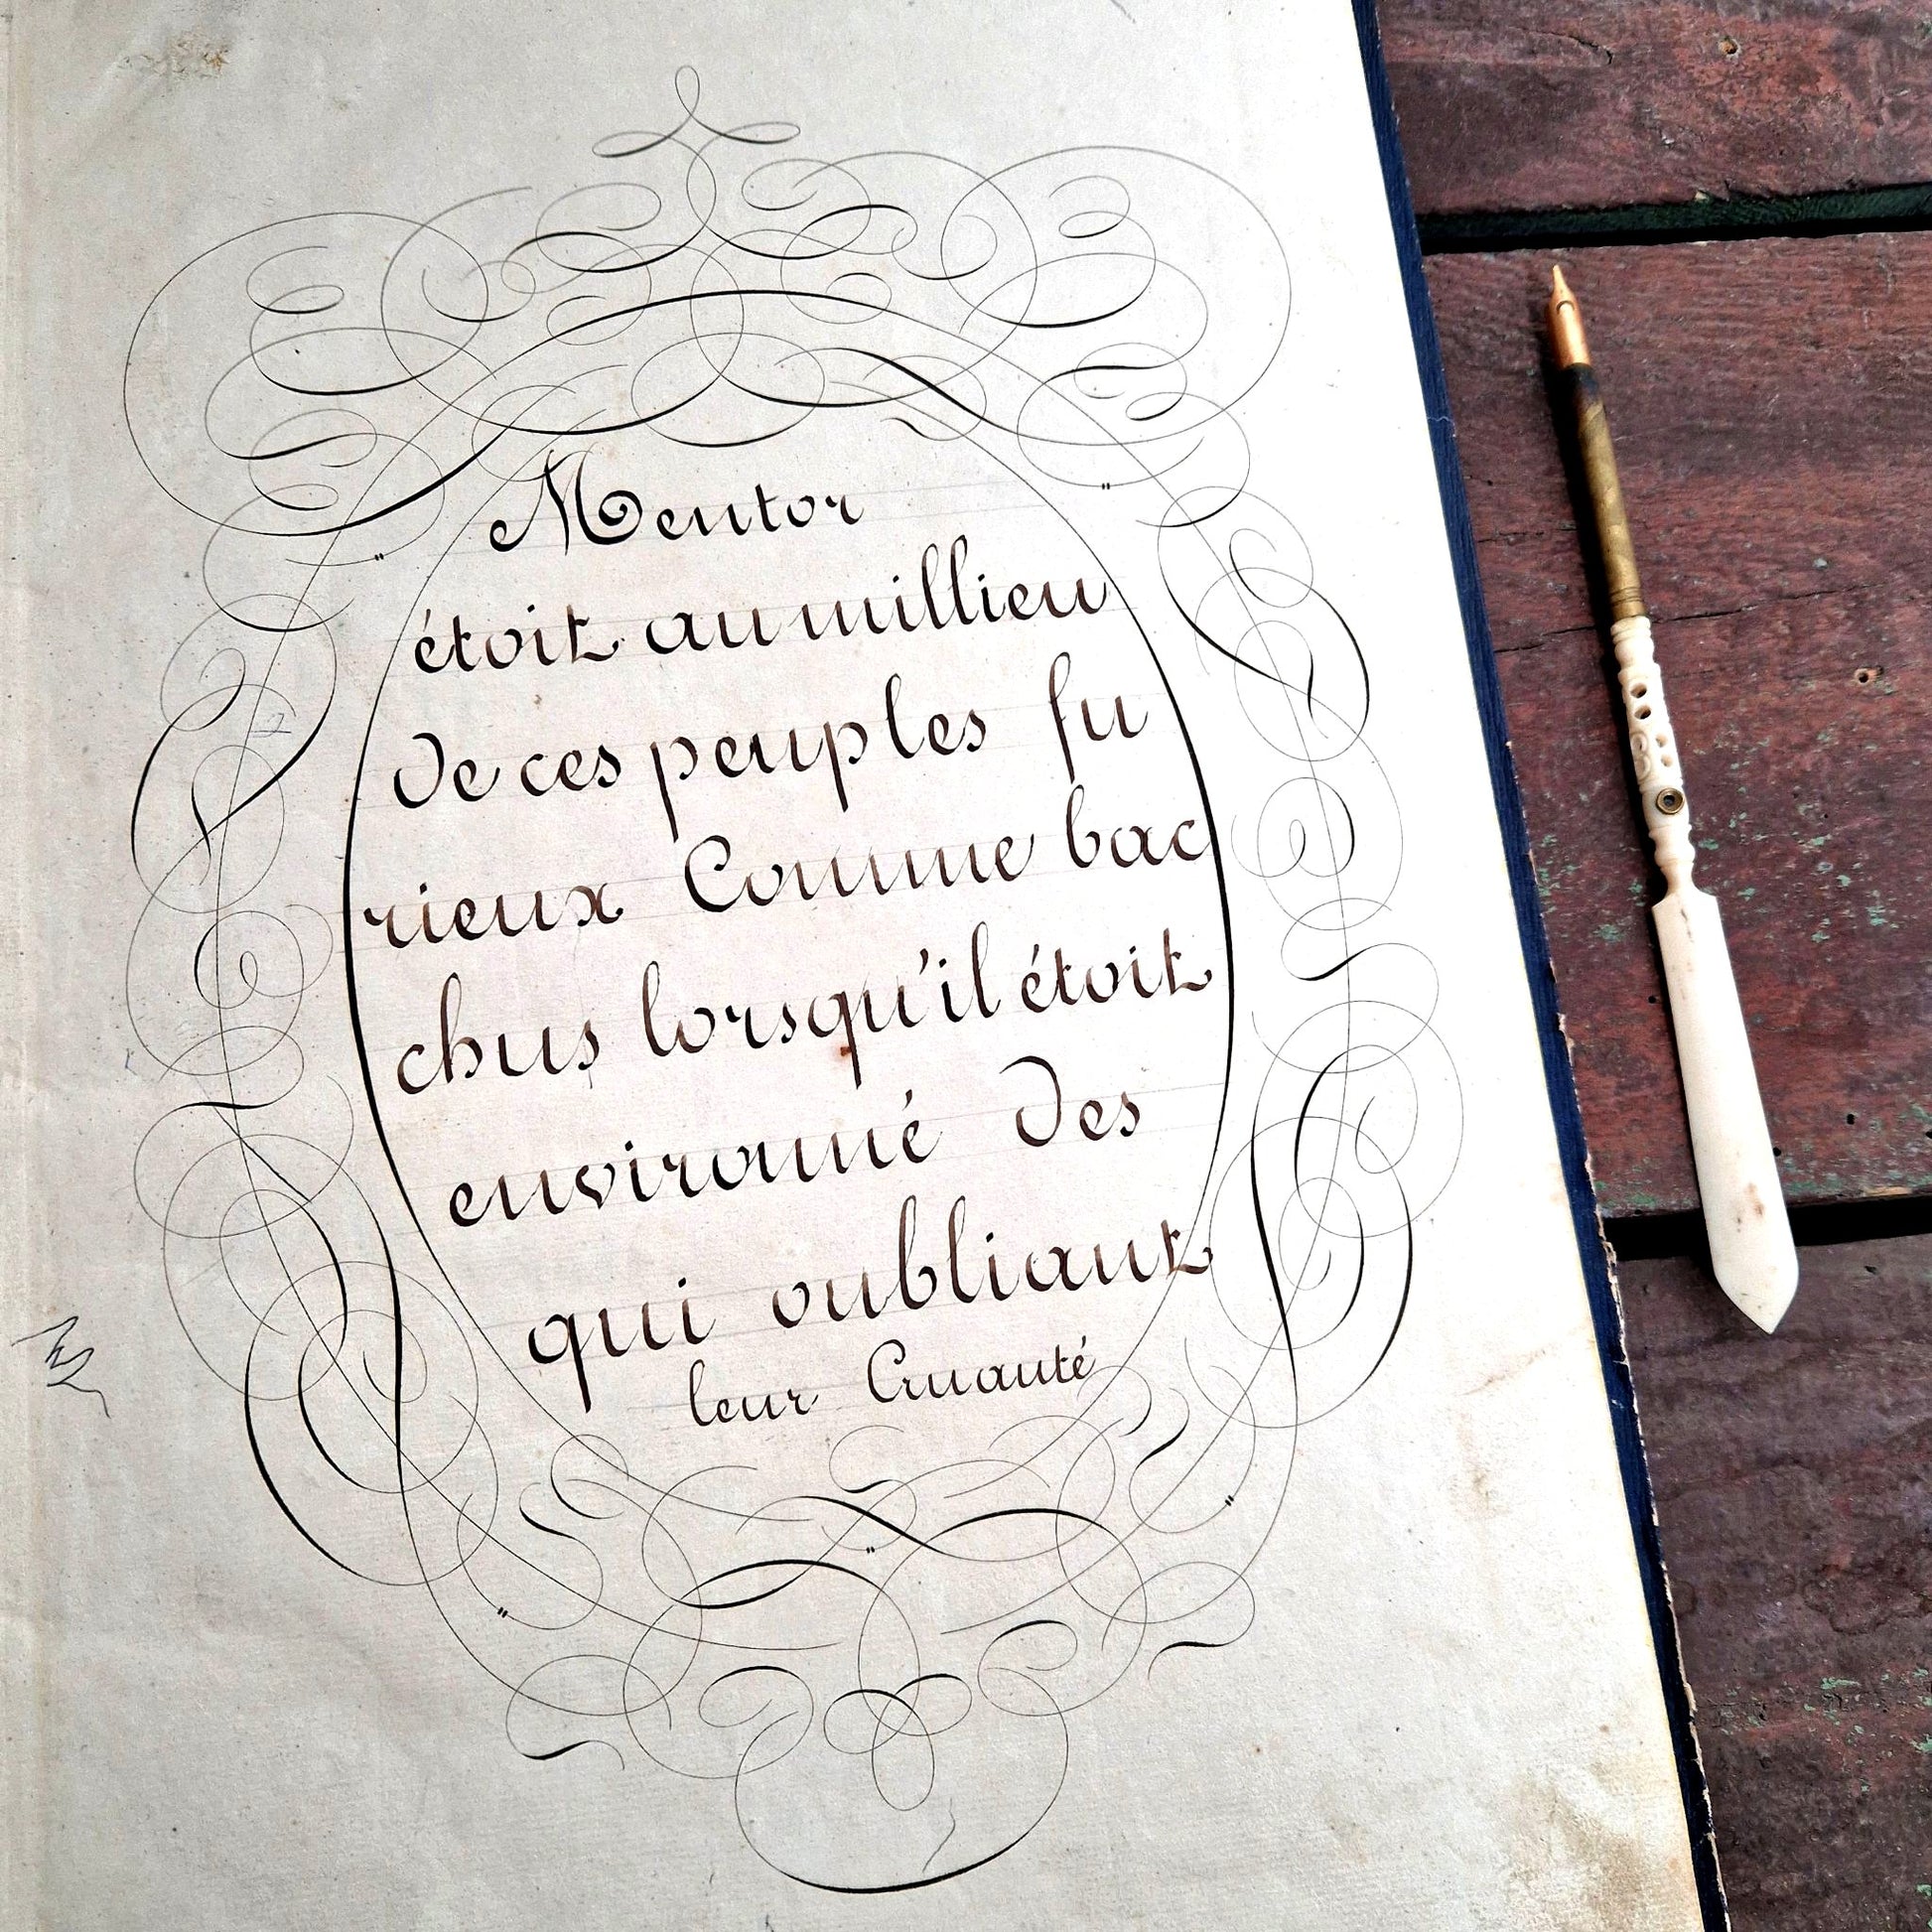 Mentor
étoit au millieu
de ces peuples fu
rieux Comme bac
chus lorsqu'il étoit
environné des
qui oubliant
leur Cruauté